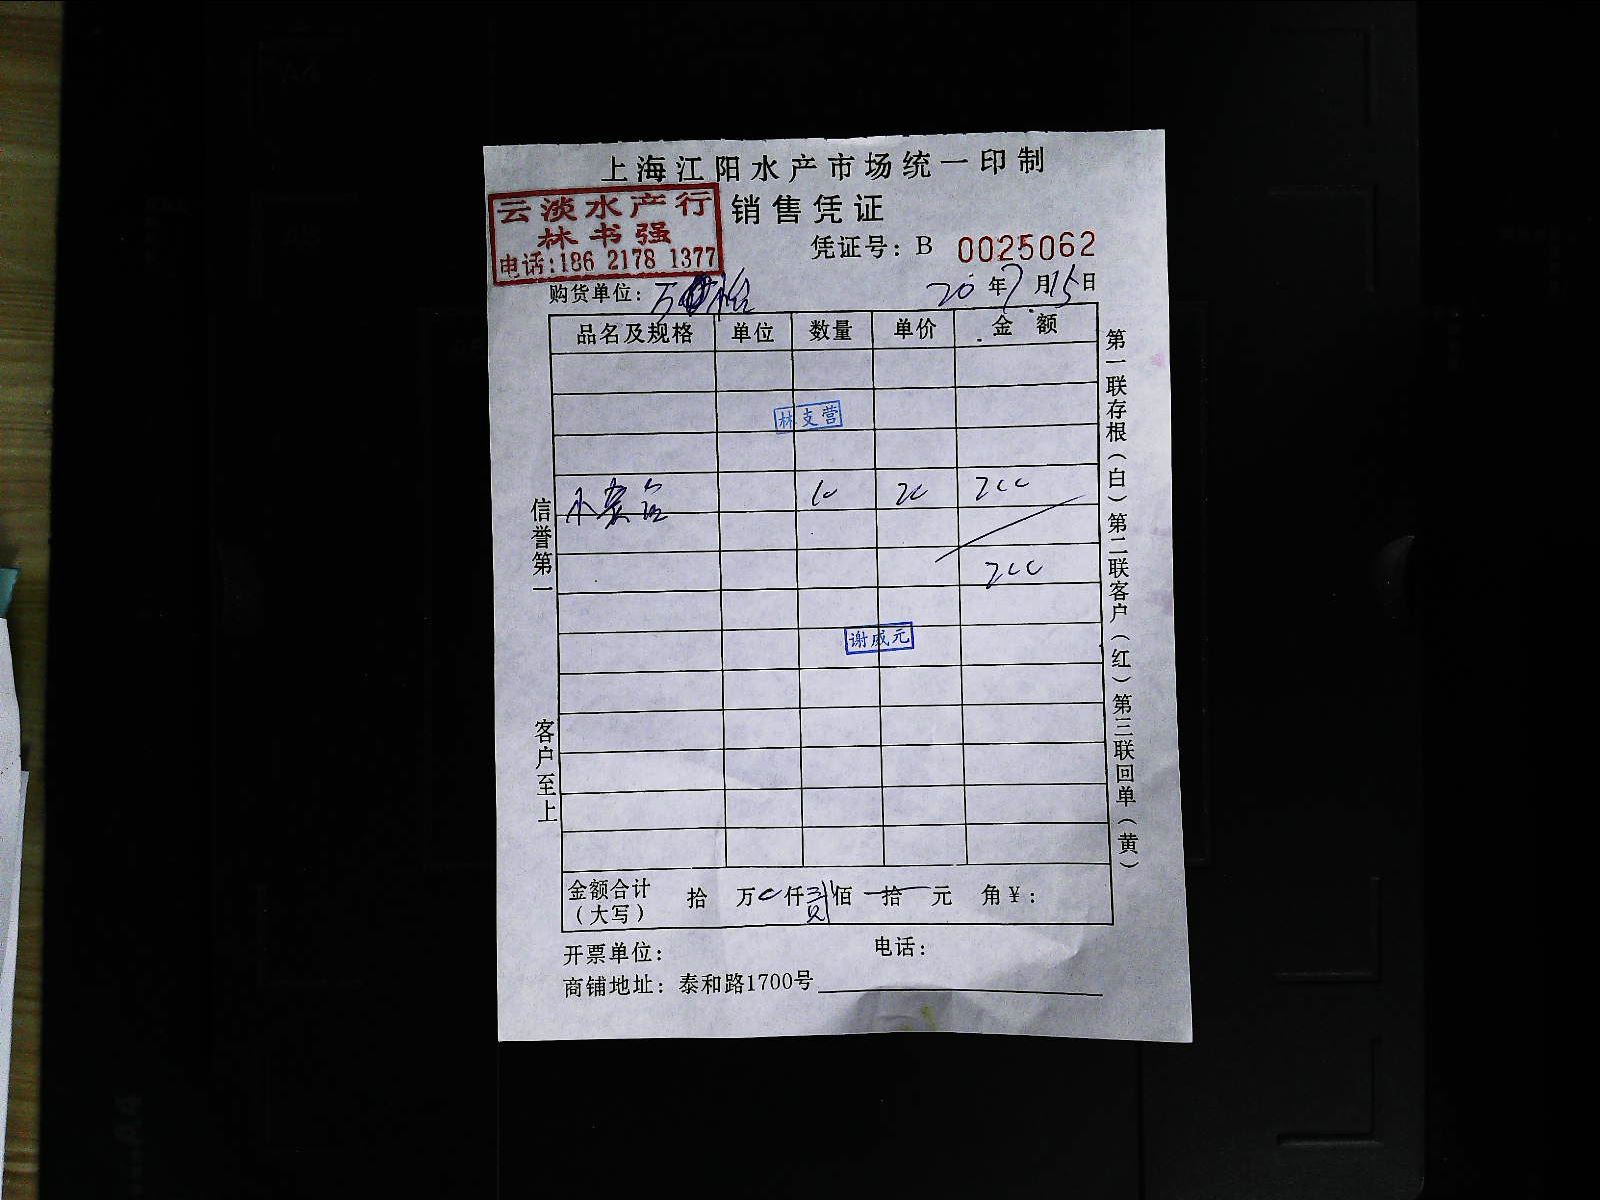 上海江阳水产市场统一印制
云淡水产行
林书强
电话:186 2178 1377
销售凭证
凭证号: B 0025062
购货单位: 万
20 年 7 月 15 日
品名及规格 单位 数量 单价 金额
林支营
小 10 20 200
200
谢成元
金额合计（大写） 拾 万 仟 佰 拾 元 角 ￥:
开票单位: 电话:
商铺地址: 泰和路1700号
信誉第一 客户至上
第一联存根(白)第二联客户(红)第三联回单(黄)